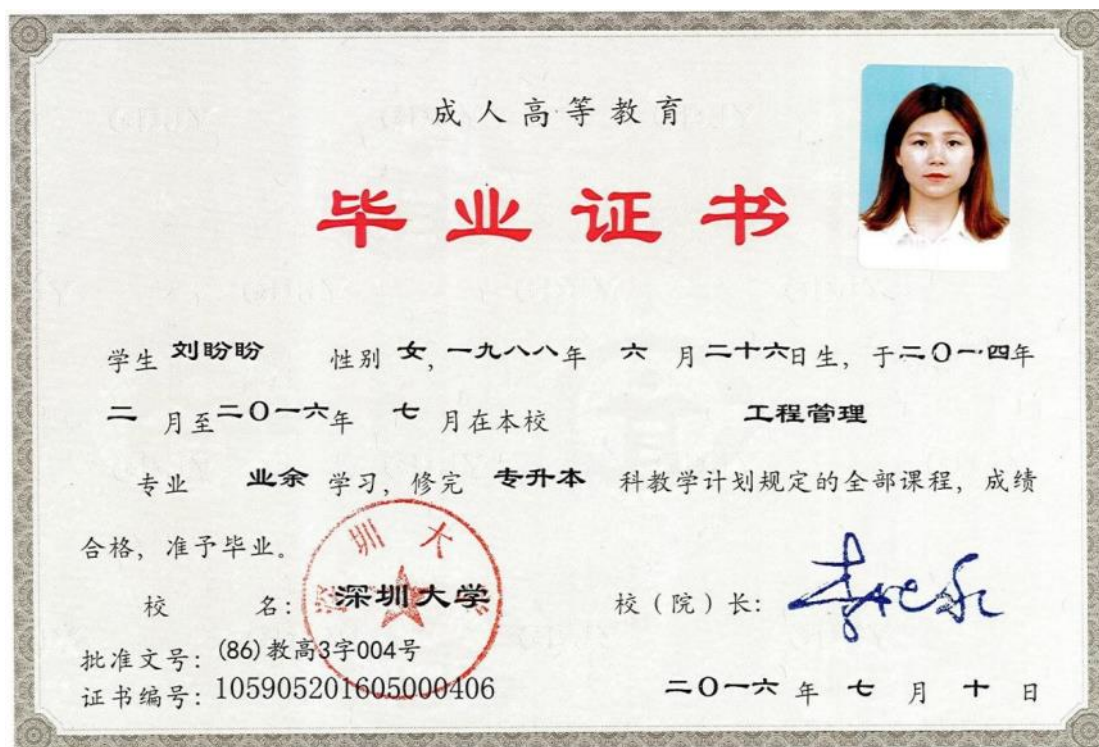 成人高等教育
毕业证书
学生 刘盼盼 性别 女，一九八八年 六 月二十六日生，于二〇一四年
二 月至二〇一六年 七 月在本校 工程管理
专业 业余 学习，修完 专升本 科教学计划规定的全部课程，成绩
合格，准予毕业。
深圳大学
校 名：深圳大学 校（院）长：
批准文号：(86)教高3字004号
证书编号：105905201605000406 二〇一六 年 七 月 十 日